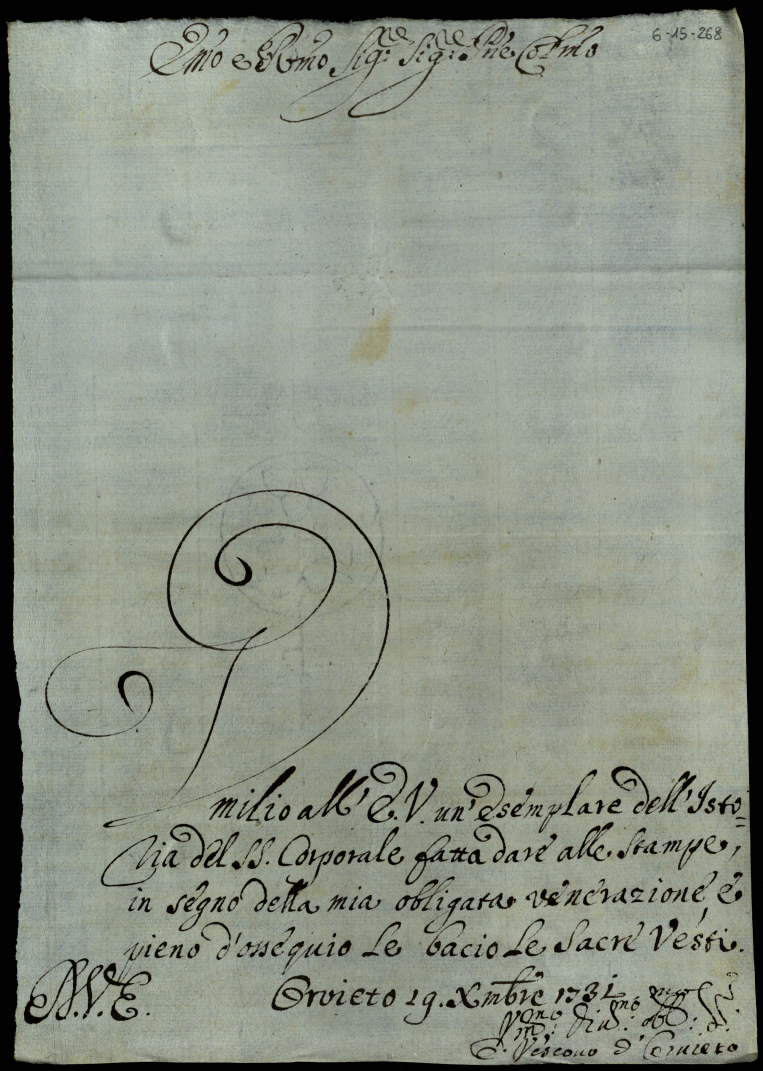 6-15-268
Emo e Rmo Sig:re Sig:re Pne Colmo
Umilio all' E.V. un' esemplare dell' Isto=
ria del SS. Corporale fatta dare alle stampe,
in segno della mia obligata venerazione, e
pieno d'ossequio Le bacio Le Sacre Vesti.
Orvieto 19. Xmbre 1731
V. E.
Vmo: Diu:mo obl:mo
Vescouo d'Oruieto